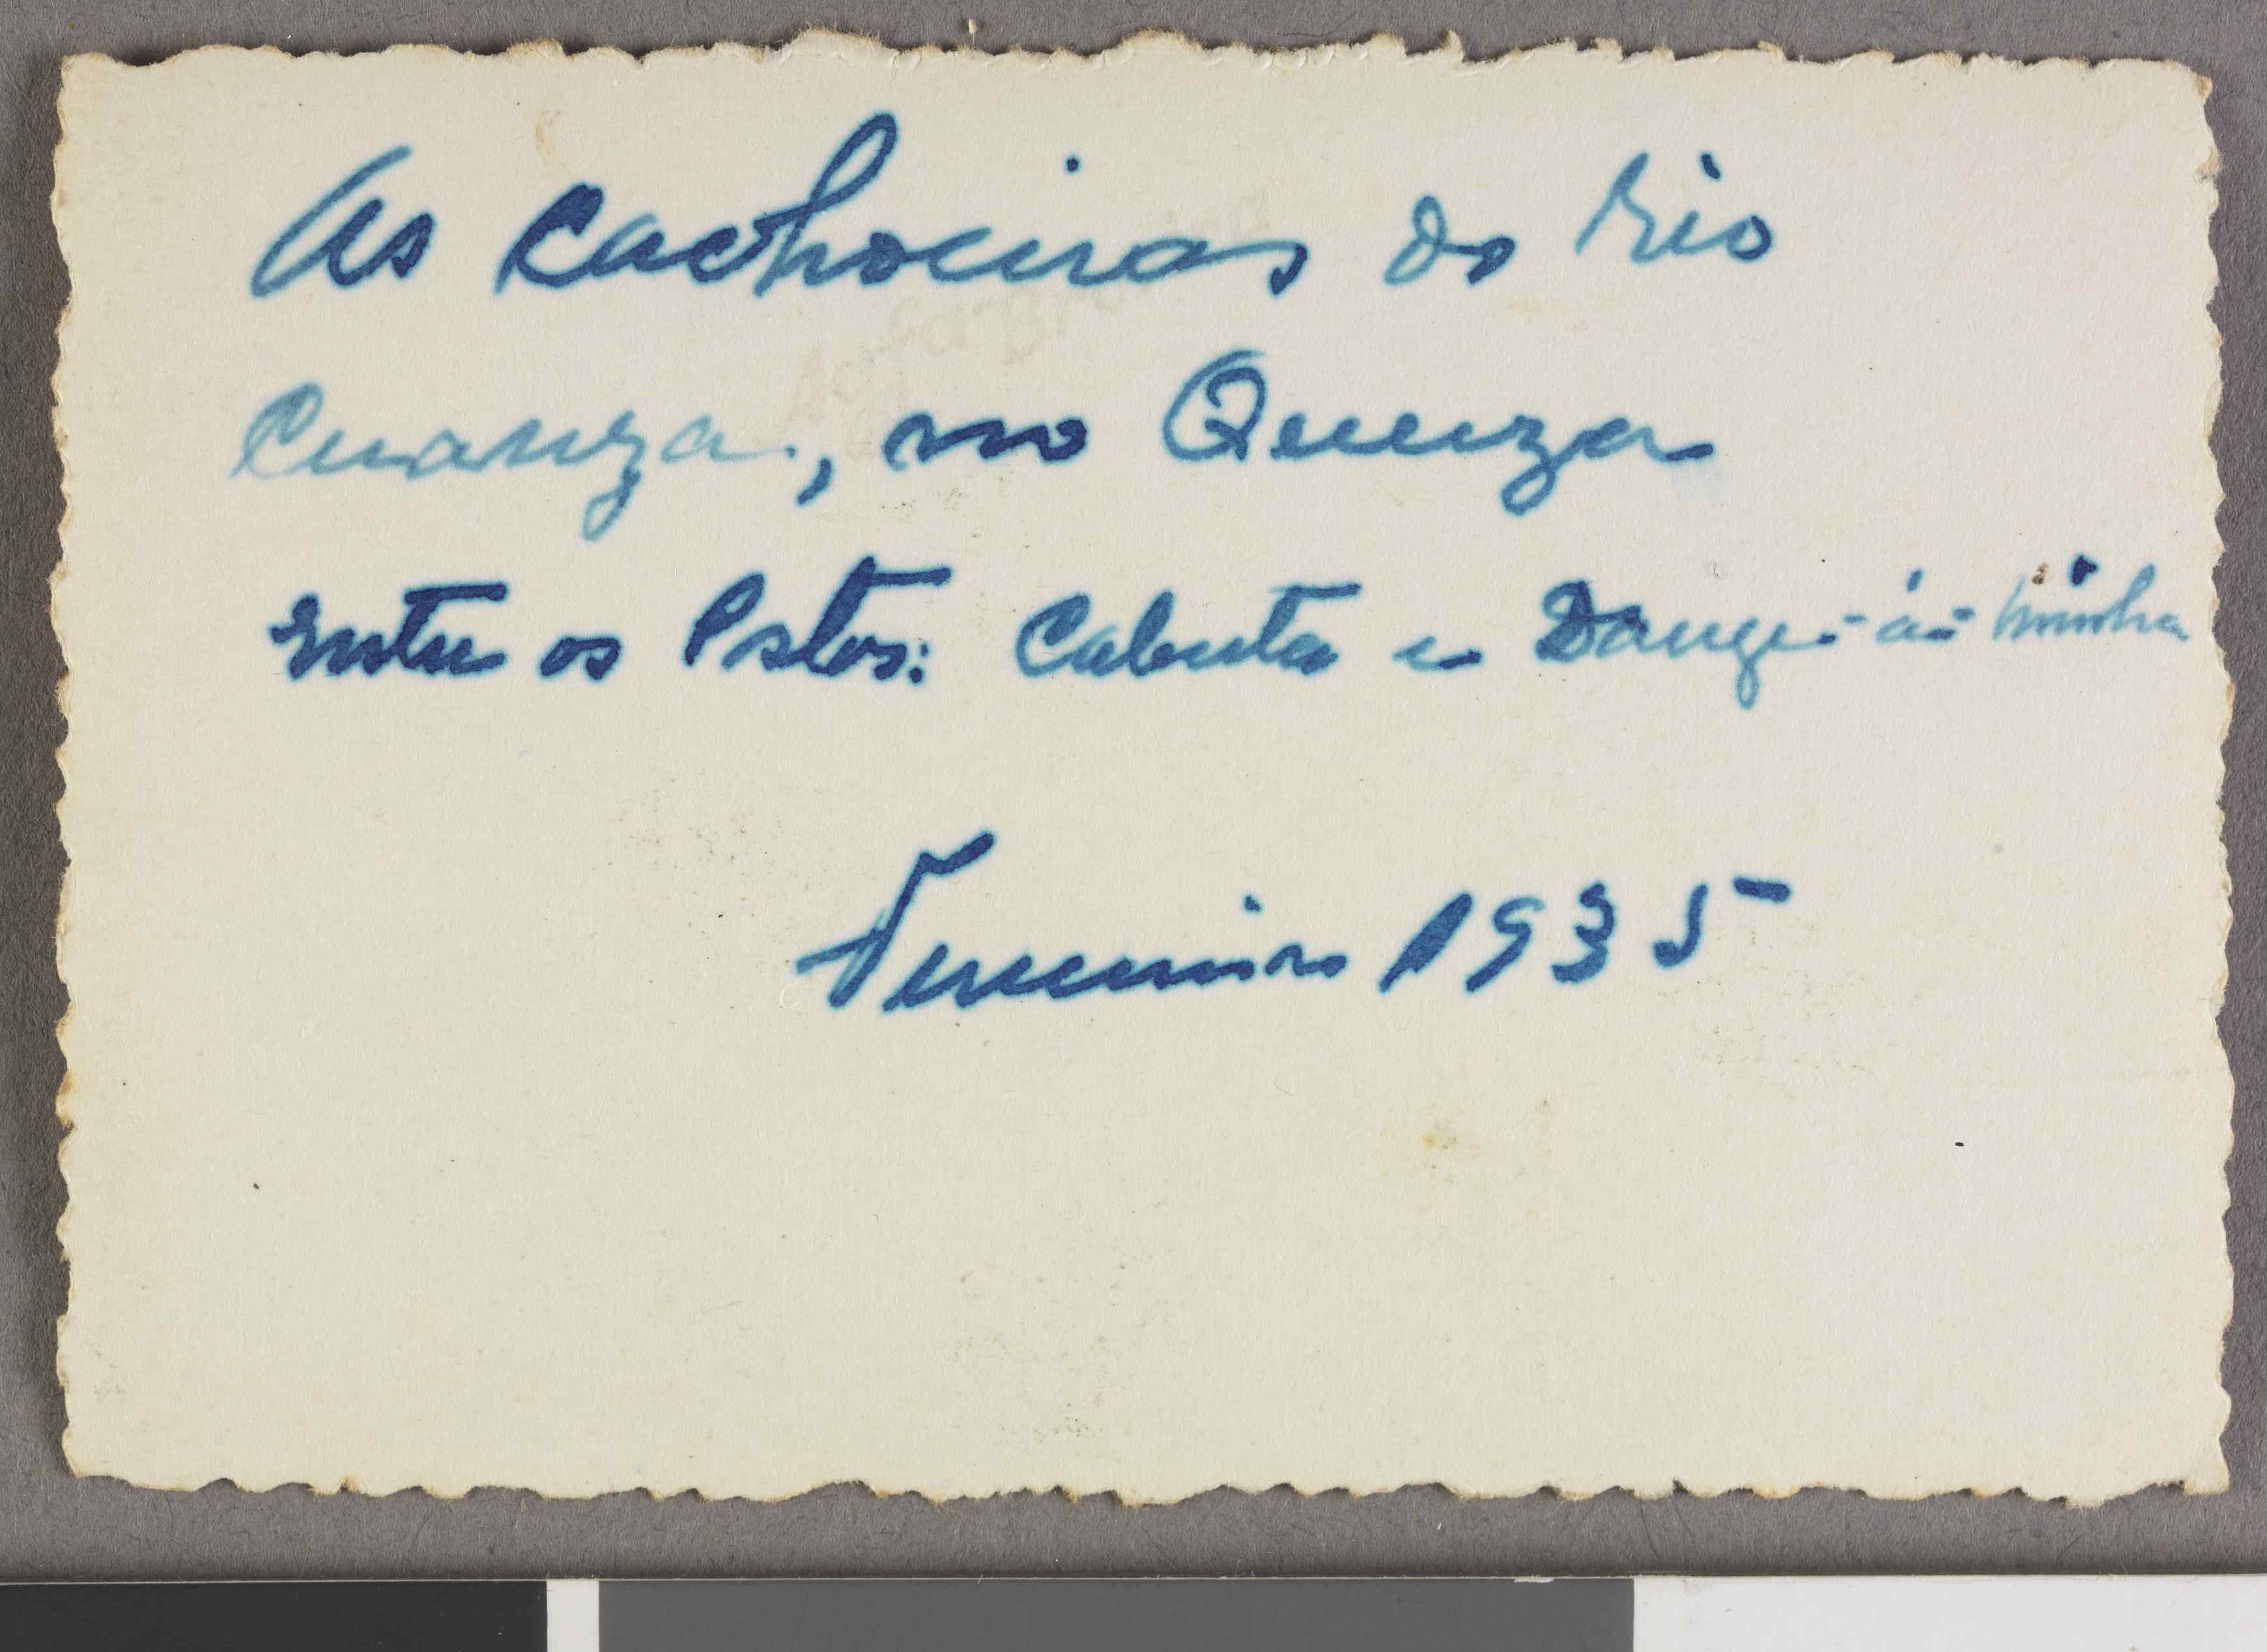 As cachoeiras do rio
Cuanza, no Quenza
Entre os Postos: Cabuta e Dange-ia-Minha
Fevereiro 1935